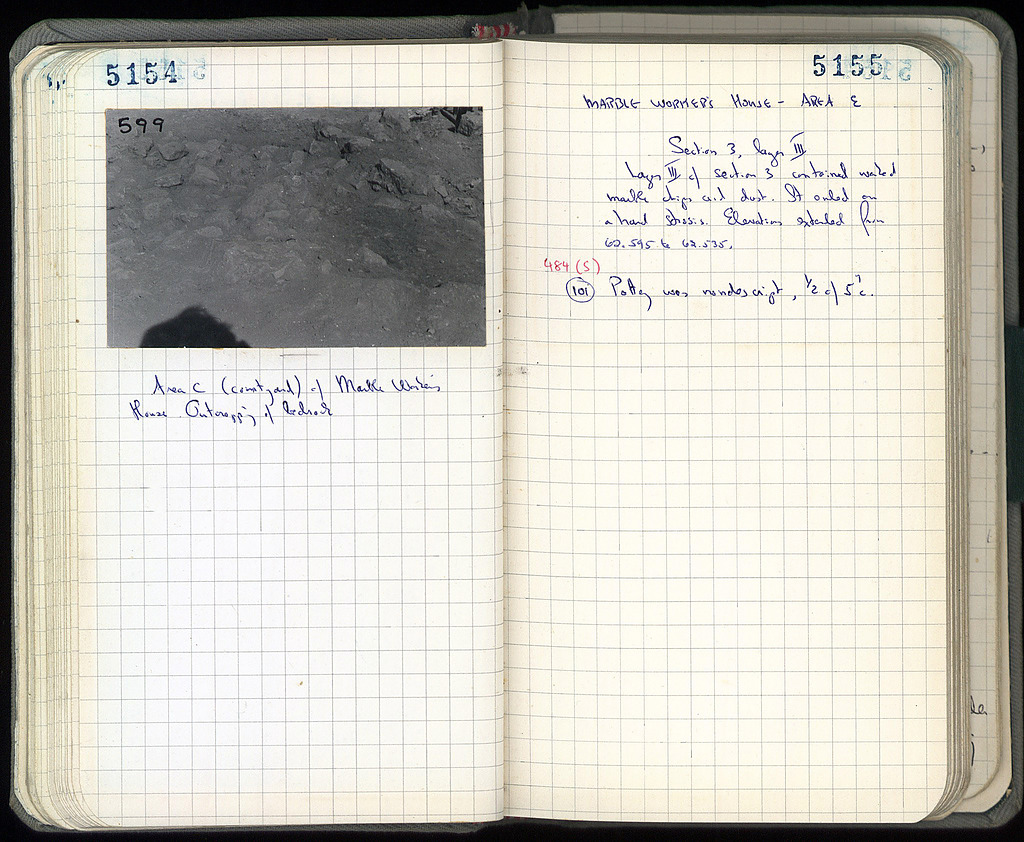 5154
599
Area C (courtyard) of Marble Worker's
House. Outcropping of bedrock
5155
MARBLE WORKER'S HOUSE - AREA E
Section 3, layer III
Layer III of section 3 contained
marble chips and dust. It ended on
a hard strosis. Elevations extended from
to 62.535.
484 (5)
101 Pottery was nondescript, 1/2 of 5 c.